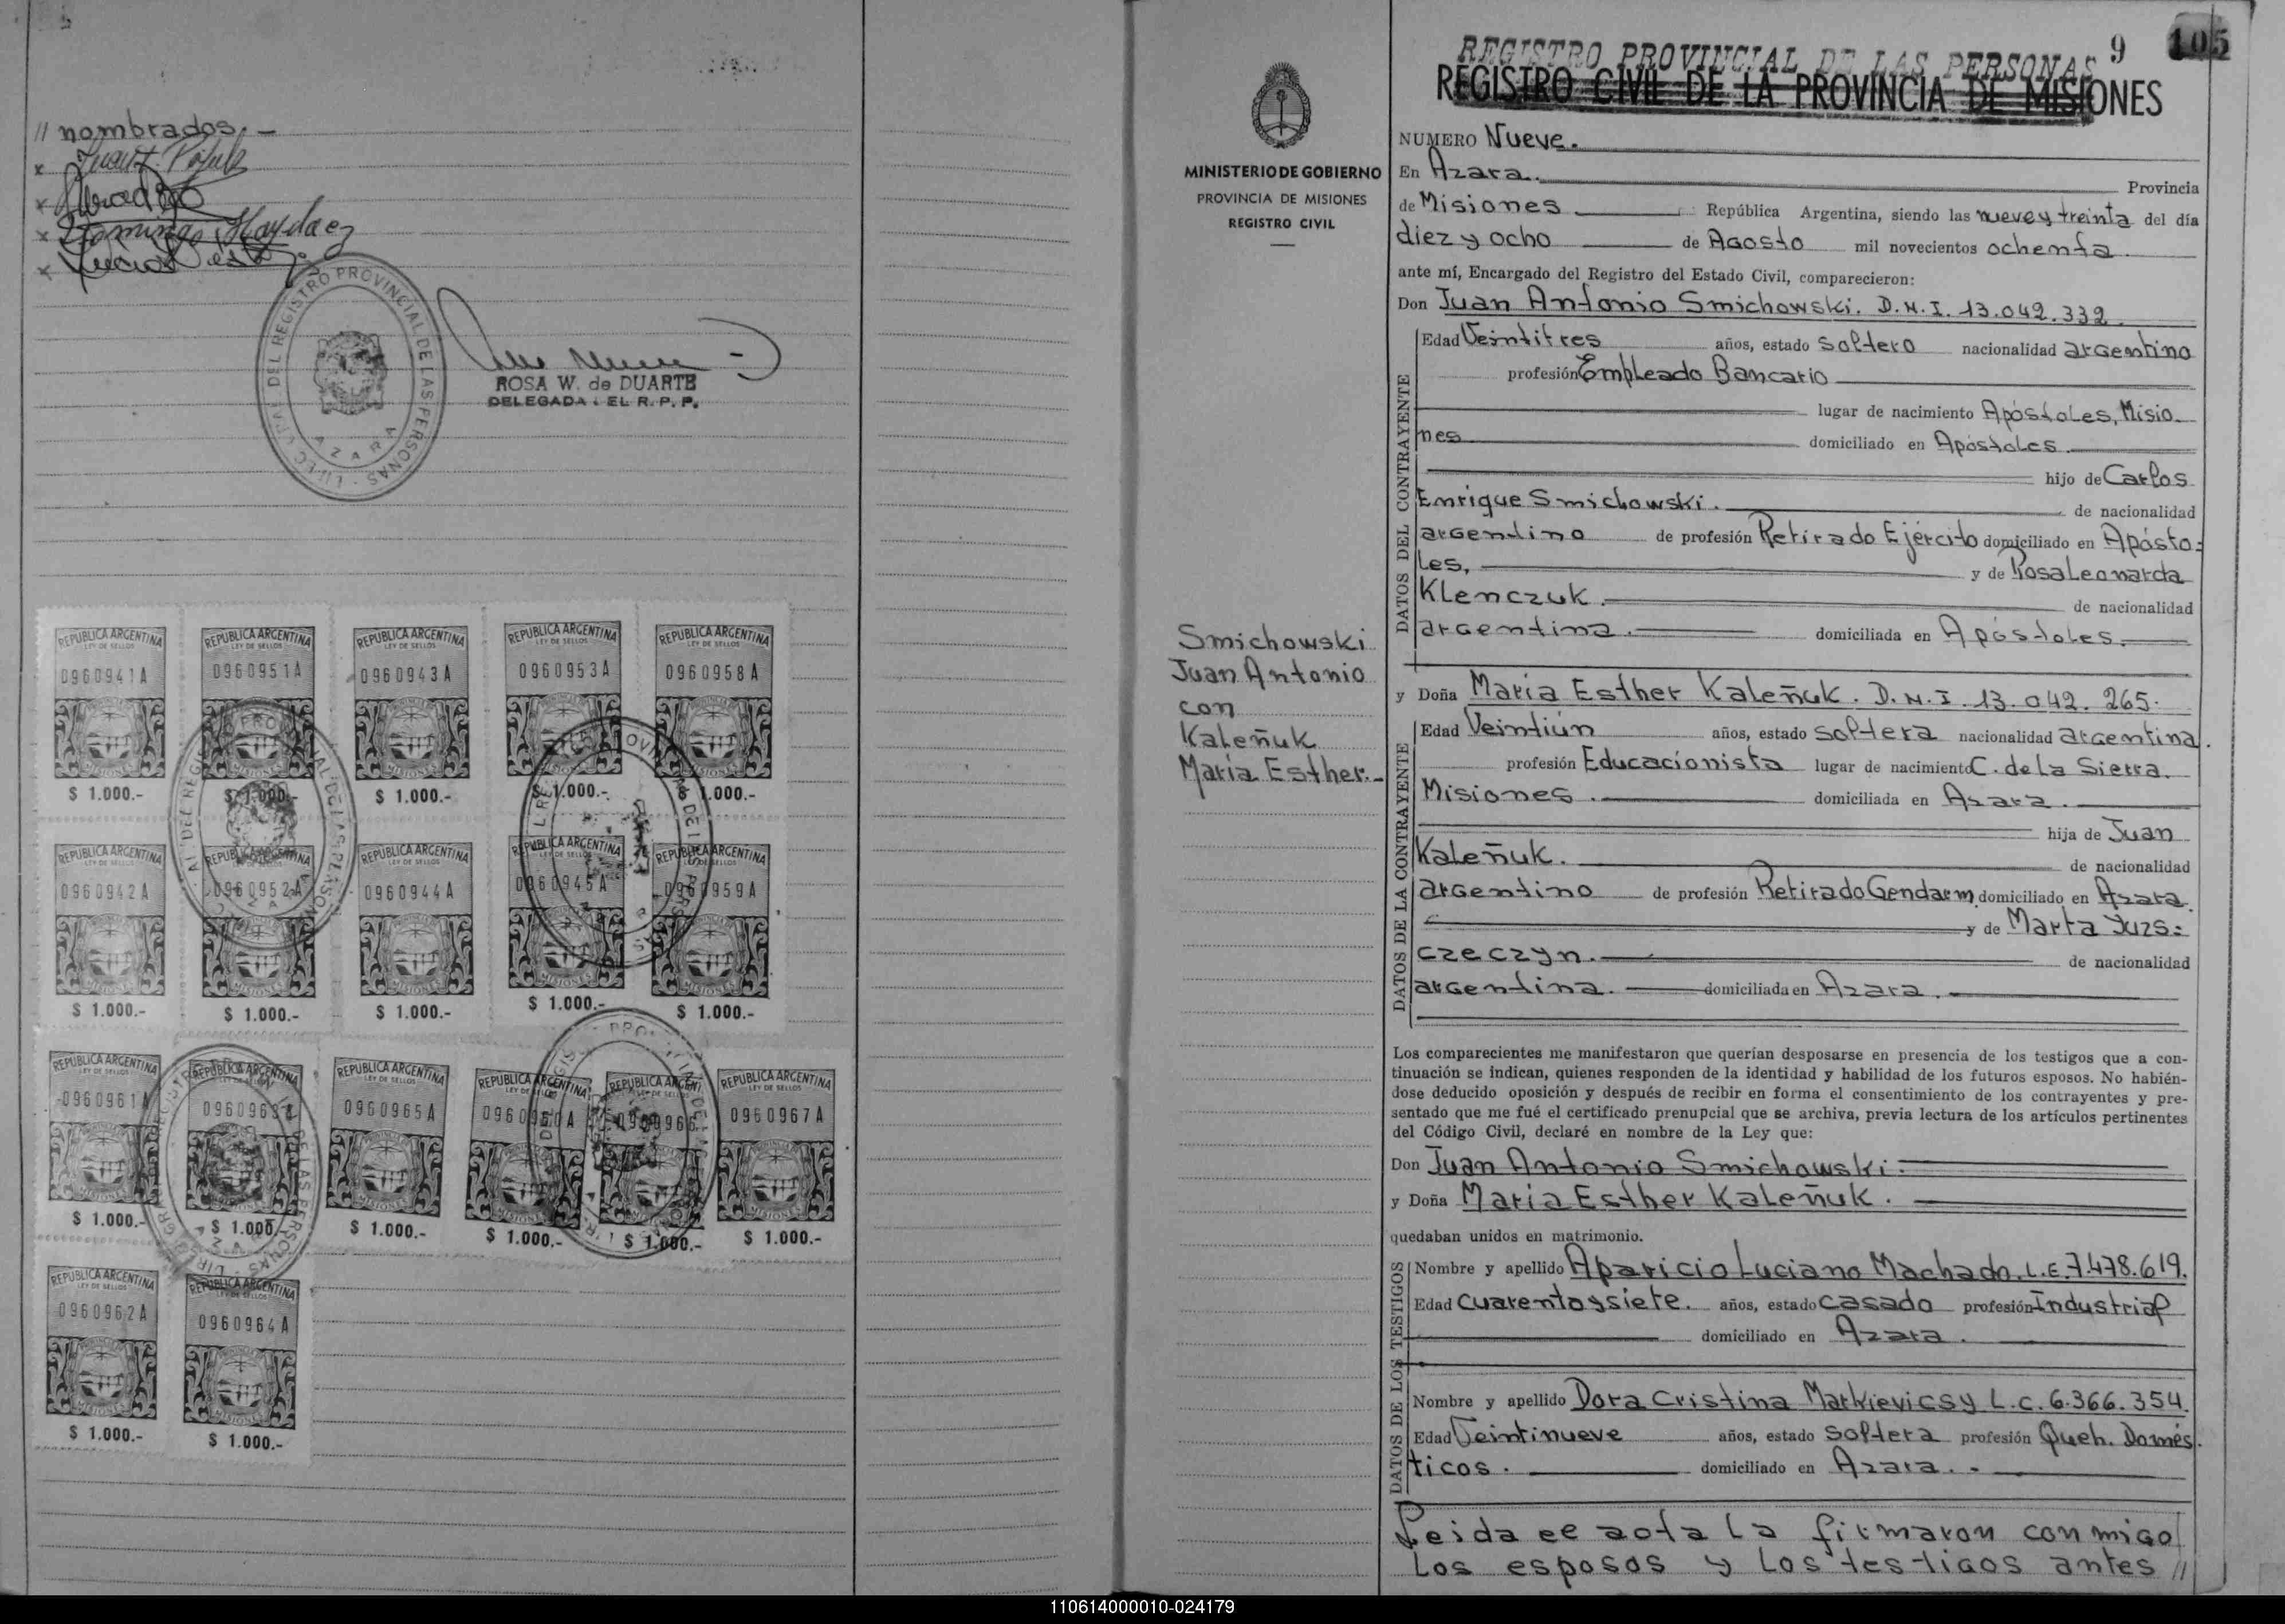 // nombrados. -
ROSA W. de DUARTE
DELEGADA EL R. P. P.
REPUBLICA ARGENTINA REPUBLICA ARGENTINA REPUBLICA ARGENTINA REPUBLICA ARGENTINA REPUBLICA ARGENTINA
LEY DE SELLOS LEY DE SELLOS LEY DE SELLOS LEY DE SELLOS LEY DE SELLOS
0960941A 0960951A 0960943A 0960953A 0960958A
MISIONES MISIONES MISIONES MISIONES MISIONES
$ 1.000.- $ 1.000.- $ 1.000.- $ 1.000.- 1.000.-
REPUBLICA ARGENTINA REPUBLICA ARGENTINA REPUBLICA ARGENTINA REPUBLICA ARGENTINA REPUBLICA ARGENTINA
LEY DE SELLOS LEY DE SELLOS LEY DE SELLOS
0960942A 0960952A 0960944A 0960945A 0960959A
MISIONES MISIONES MISIONES MISIONES MISIONES
$ 1.000.- $ 1.000.- $ 1.000.- $ 1.000.- $ 1.000.-
REPUBLICA ARGENTINA REPUBLICA ARGENTINA REPUBLICA ARGENTINA REPUBLICA ARGENTINA REPUBLICA ARGENTINA REPUBLICA ARGENTINA
0960961A 0960965A 0960967A
MISIONES MISIONES MISIONES MISIONES MISIONES MISIONES
$ 1.000.- $ 1.000.- $ 1.000.- $ 1.000.- $ 1.000.- $ 1.000.-
REPUBLICA ARGENTINA REPUBLICA ARGENTINA
LEY DE SELLOS LEY DE SELLOS
0960962A 0960964A
MISIONES MISIONES
$ 1.000.- $ 1.000.-
MINISTERIO DE GOBIERNO
PROVINCIA DE MISIONES
REGISTRO CIVIL
Smichowski
Juan Antonio
con
Kaleñuk
María Esther.-
9 105
REGISTRO PROVINCIAL DE LAS PERSONAS
REGISTRO CIVIL DE LA PROVINCIA DE MISIONES
NUMERO Nueve.
En Azara. Provincia
de Misiones República Argentina, siendo las nueve y treinta del día
diez y ocho de Agosto mil novecientos ochenta.
ante mí, Encargado del Registro del Estado Civil, comparecieron:
Don Juan Antonio Smichowski. D.N.I. 13.042.332.
DATOS DEL CONTRAYENTE
Edad Veintitres años, estado soltero nacionalidad argentino
profesión Empleado Bancario
lugar de nacimiento Apóstoles, Misio-
nes domiciliado en Apóstoles.
hijo de Carlos
Enrique Smichowski. de nacionalidad
argentino de profesión Retirado Ejército domiciliado en Apósto=
les, y de Rosa Leonarda
Klenczuk. de nacionalidad
argentina. domiciliada en Apóstoles.
y Doña María Esther Kaleñuk. D.N.I. 13.042.265.
DATOS DE LA CONTRAYENTE
Edad Veintiún años, estado soltera nacionalidad argentina.
profesión Educacionista lugar de nacimiento C. de la Sierra.
Misiones. domiciliada en Azara.
hija de Juan
Kaleñuk. de nacionalidad
argentino de profesión Retirado Gendarm. domiciliado en Azara.
y de Marta Juzs=
czeczyn. de nacionalidad
argentina. domiciliada en Azara.
Los comparecientes me manifestaron que querían desposarse en presencia de los testigos que a con-
tinuación se indican, quienes responden de la identidad y habilidad de los futuros esposos. No habién-
dose deducido oposición y después de recibir en forma el consentimiento de los contrayentes y pre-
sentado que me fué el certificado prenupcial que se archiva, previa lectura de los artículos pertinentes
del Código Civil, declaré en nombre de la Ley que:
Don Juan Antonio Smichowski.
y Doña María Esther Kaleñuk.
quedaban unidos en matrimonio.
DATOS DE LOS TESTIGOS
Nombre y apellido Aparicio Luciano Machado. L.E. 7.478.619.
Edad cuarenta y siete. años, estado casado profesión Industrial
domiciliado en Azara.
DATOS DE LOS TESTIGOS
Nombre y apellido Dora Cristina Markievicsy L.C. 6.366.354.
Edad Veintinueve años, estado soltera profesión Queh. Domés.
ticos. domiciliado en Azara.
Leida el acta la firmaron conmigo
los esposos y los testigos antes //
110614000010-024179